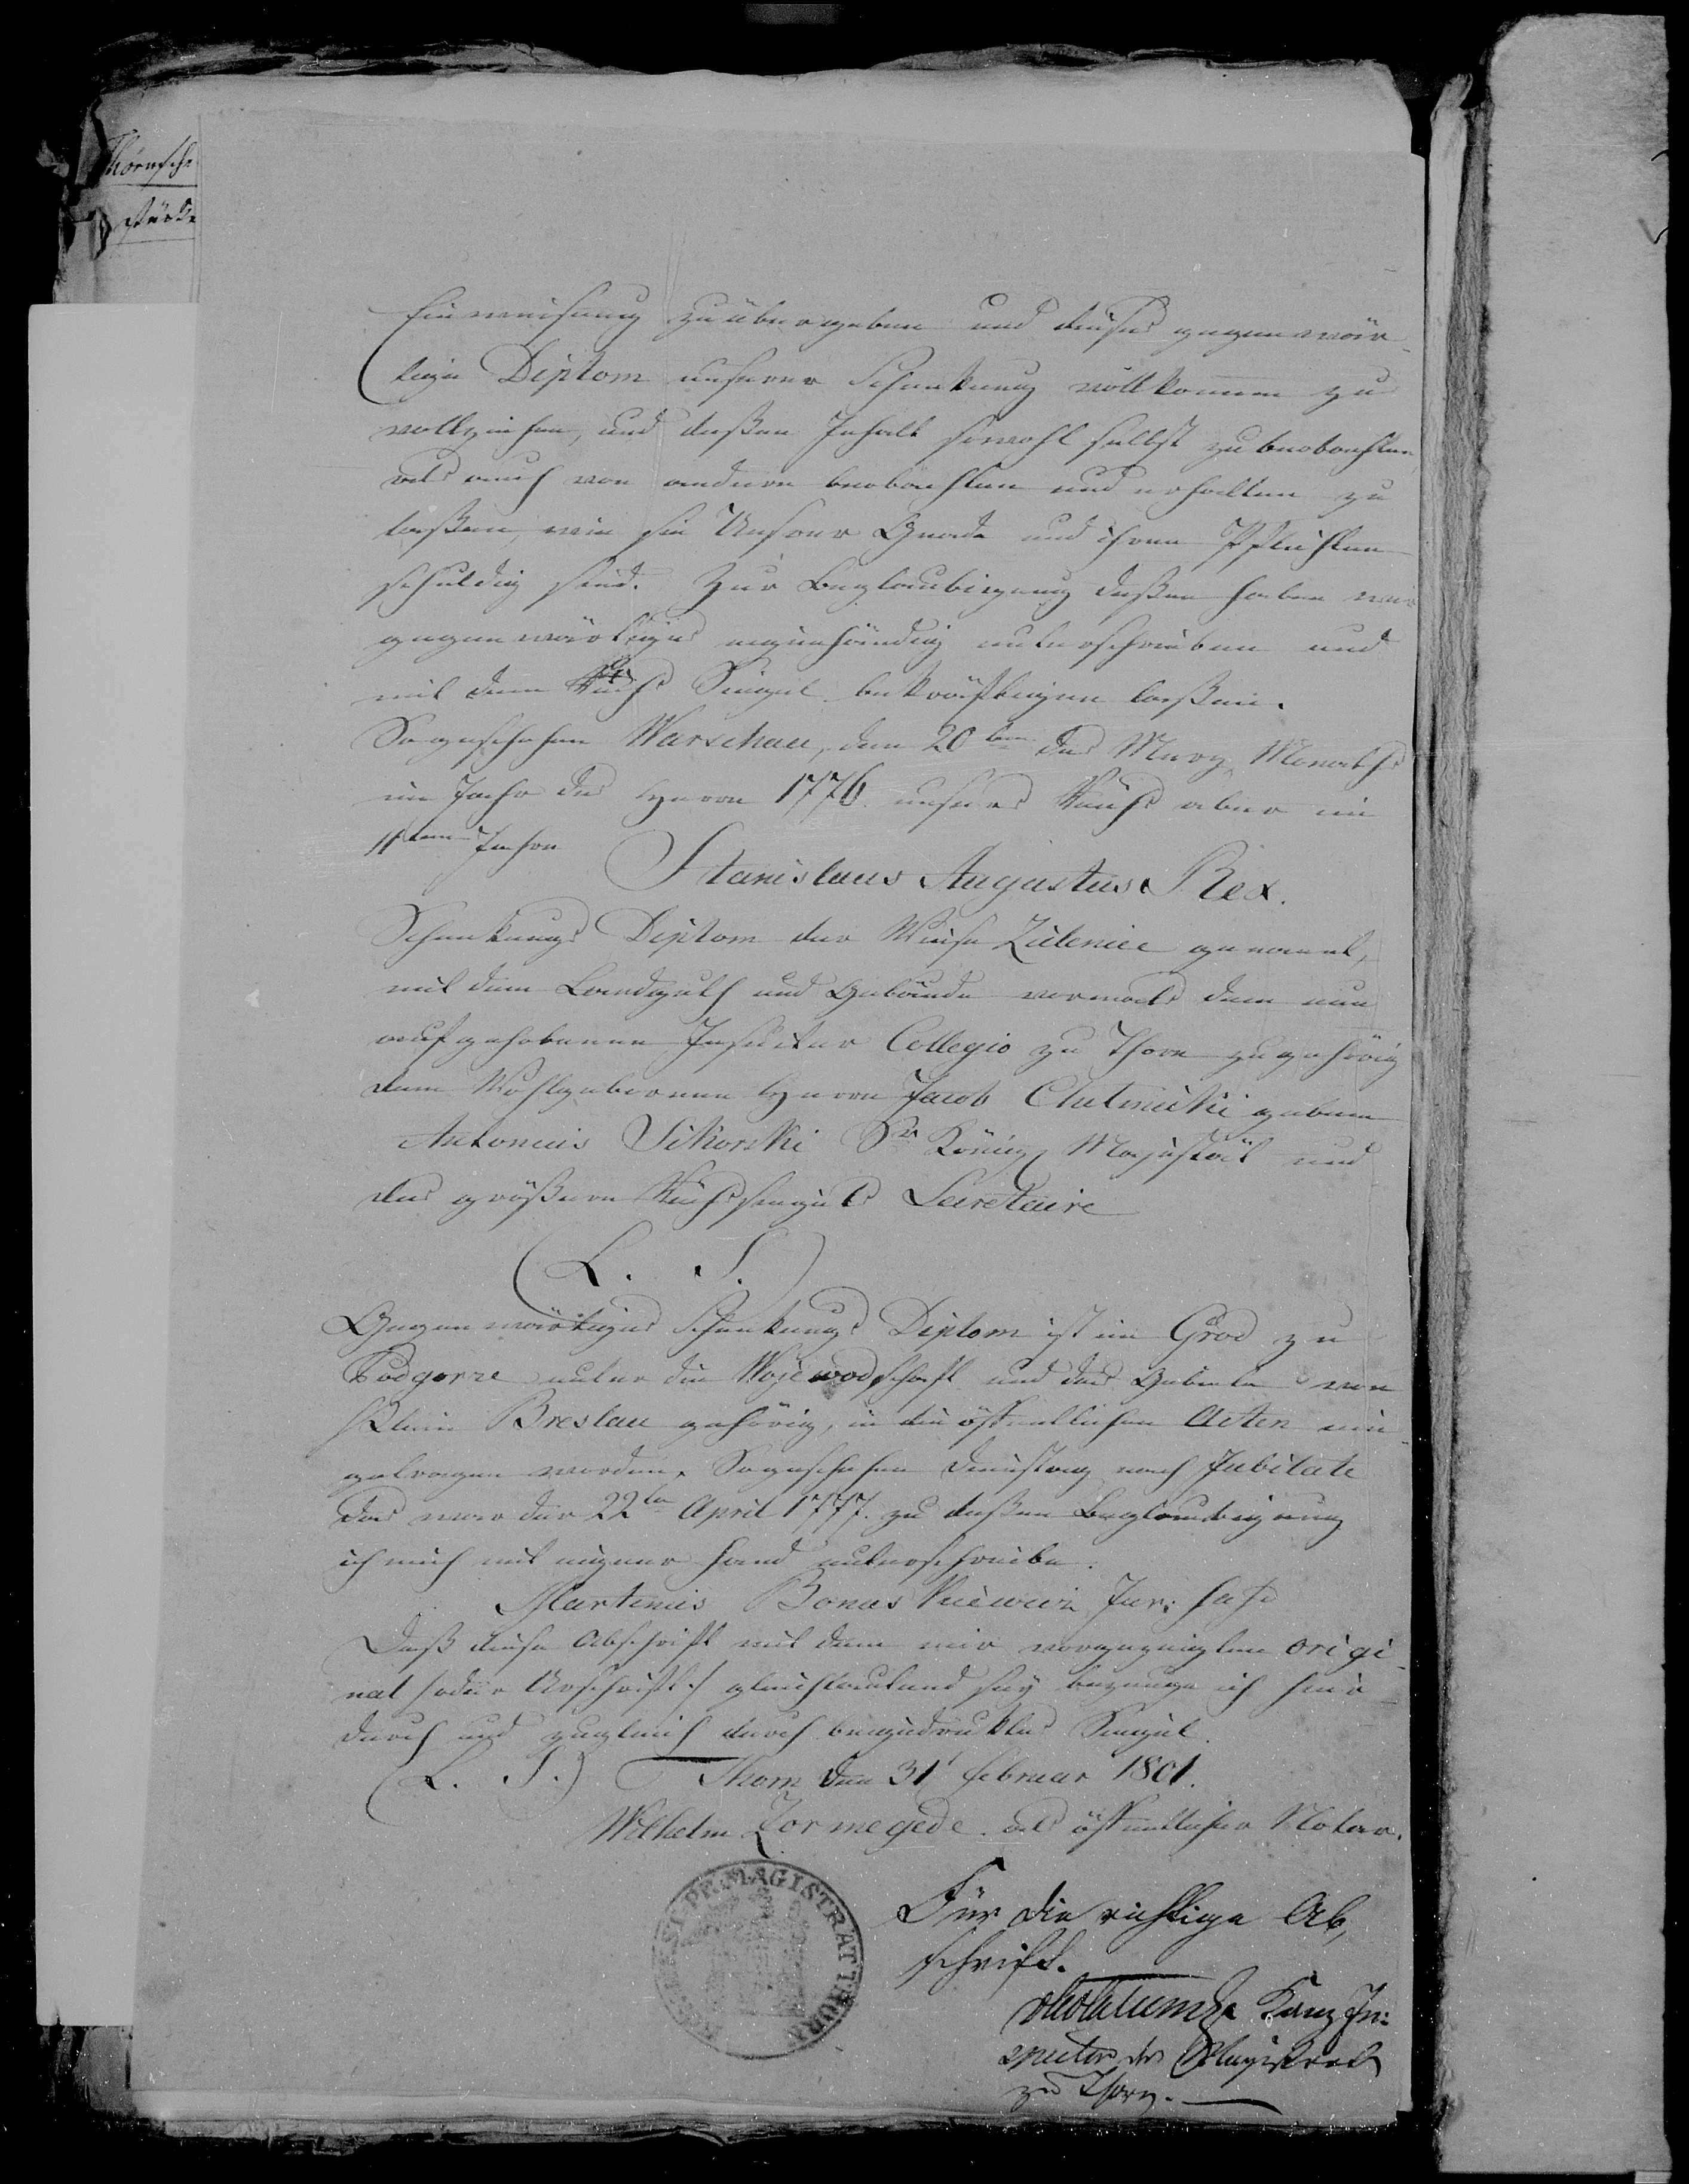 Thornsche
Einweisung zu übergeben und dieses gegenwär-
tige Diplom unserer Schenkung vollkommen zu
vollziehen, und deßen Inhalt sowohl selbst zu beobachten
als auch von andern beobachten und erhalten zu
laßen, wie sie Unserer Gnade und ihren Pflichten
schuldig sind. Zur Beglaubigung deßen haben wir
gegenwärtiges eigenhändig unterschrieben und
mit dem Siegel bekräftigen laßen.
So geschehen Warschau, den 20ten des Merz Monaths
im Jahr des Herrn 1776. unseres Reichs aber im
11ten Jahre
Stanislaus Augustus Rex.
Schenkungs Diplom der Wiese Zulenice genannt,
mit dem Landguth und Gebäude vormals dem nun
aufgehobenen Jesuiter Collegio zu Thorn zugehörig
dem Wohlgebornen Herrn Jacob geben
Antonius Sikorski Sr Königl Majestät und
des größern Reichssiegels Secretaire
(L. S.)
Gegenwärtiges Schenkungs Diplom ist im Grod zu
Podgorze unter die Wojewodschaft und das Gebiete von
Klein Breslau gehörig, in die öffentlichen Acten ein-
getragen worden. So geschehen Dienstag nach Jubilate
das war der 22te April 1777. zu deßen Beglaubigung
ich mich mit eigener Hand unterschreibe.
Martinus
Daß diese Abschrift mit dem mir vorgezeigten origi-
nal /:oder Urschrift:/ gleichlautend sey bezeuge ich hier-
durch und zugleich durch beigedruktes Siegel.
(L. S.) Thorn den 31t Februar 1801.
Wilhelm Zormegede. als öffentlicher Notar.
MAGISTRAT THORN
Für die richtige Ab,
schrift.
Kanz In:
spector des Magistrats
zu Thorn.